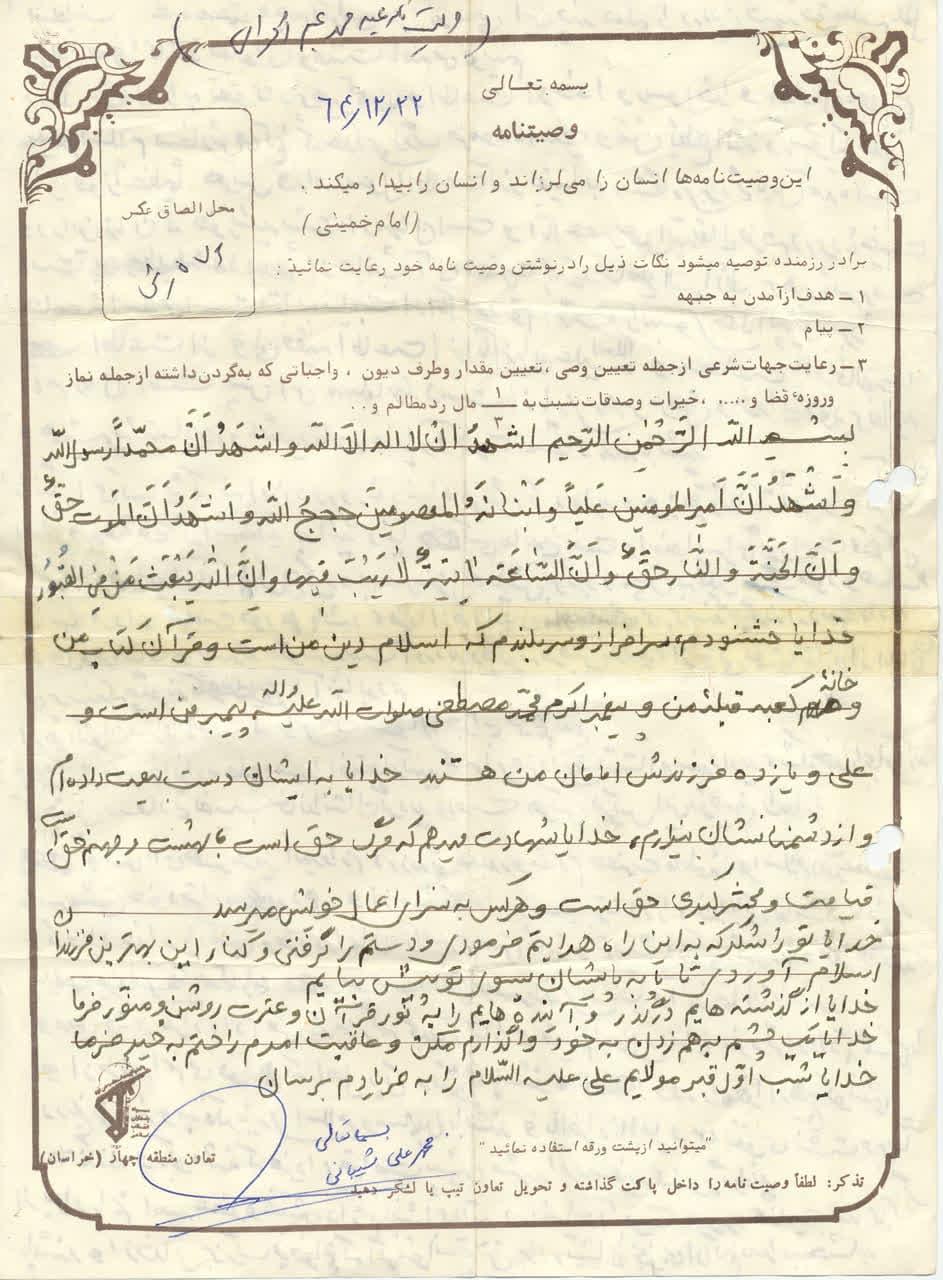 (وصیت نامه
بسمه تعالی
۶۴/۱۲/۲۲
وصیتنامه
این وصیت‌نامه‌ها انسان را می‌لرزاند و انسان را بیدار میکند .
(امام خمینی)
محل الصاق عکس
برادر رزمنده توصیه میشود نکات ذیل را در نوشتن وصیت نامه خود رعایت نمائید :
۱ ــ هدف از آمدن به جبهه
۲ ــ پیام
۳ ــ رعایت جهات شرعی از جمله تعیین وصی ، تعیین مقدار وطرف دیون ، واجباتی که به گردن داشته از جمله نماز
وروزهٔ قضا و ..... ، خیرات وصدقات نسبت به ۱/۳ مال رد مظالم و . .
بِسْمِ اللهِ الرَّحْمٰنِ الرَّحیم اشهدُ انْ لا اله الاّ الله و اشهدُ اَنَّ محمّداً رسول الله
و اَشْهَدُ اَنَّ امیرالمومنین علیاً و اَبْنائَهُ المعصومینَ حججُ الله و اَشهدُ اَنَّ الموت حقٌ
و اَنَّ الجَنَّةَ والنّارَ حقٌ و اَنَّ السّاعَته اتیةٌ لارَیْبَ فیها و اِنَّ الله یَبْعَثُ مَنْ فِی القُبُورُ
خدایا خشنودم، سرافراز و سربلندم که اسلام دین من است و قرآن کتاب من
و خانهٔ کعبه قبلهٔ من و پیغمبر اکرم محمّد مصطفی صلوات الله علیه و اله پیمبر من است و
علی و یازده فرزندش امامان من هستند خدایا به ایشان دست بیعت داده‌ام
و از دشمنانشان بیزارم، خدایا شهادت میدهم که مرگ حق است، بهشت و جهنم حق است
قیامت و محشر کبری حق است و هرکس به سزای اعمال خویش میرسد
خدایا تو را شکر که به این راه هدایتم فرمودی و دستم را گرفتی و کنار این بهترین فرزندان
اسلام آوردی تا پا به پایشان سوی تو پیش بیایم
خدایا از گذشته هایم درگذر و آینده هایم را به نور قرآن و عترت روشن و منوّر فرما
خدایا یک چشم به هم زدن به خود واگذارم مکن و عاقبت امرم را ختم به خیر فرما
خدایا شب اوّل قبر مولایم علی علیه السّلام را به فریادم برسان
بسمه تعالی
محمد علی شیبانی
"میتوانید از پشت ورقه استفاده نمائید "
تعاون منطقه چهار (خراسان)
تذکر: لطفاً وصیت نامه را داخل پاکت گذاشته و تحویل تعاون تیپ یا لشگر دهید